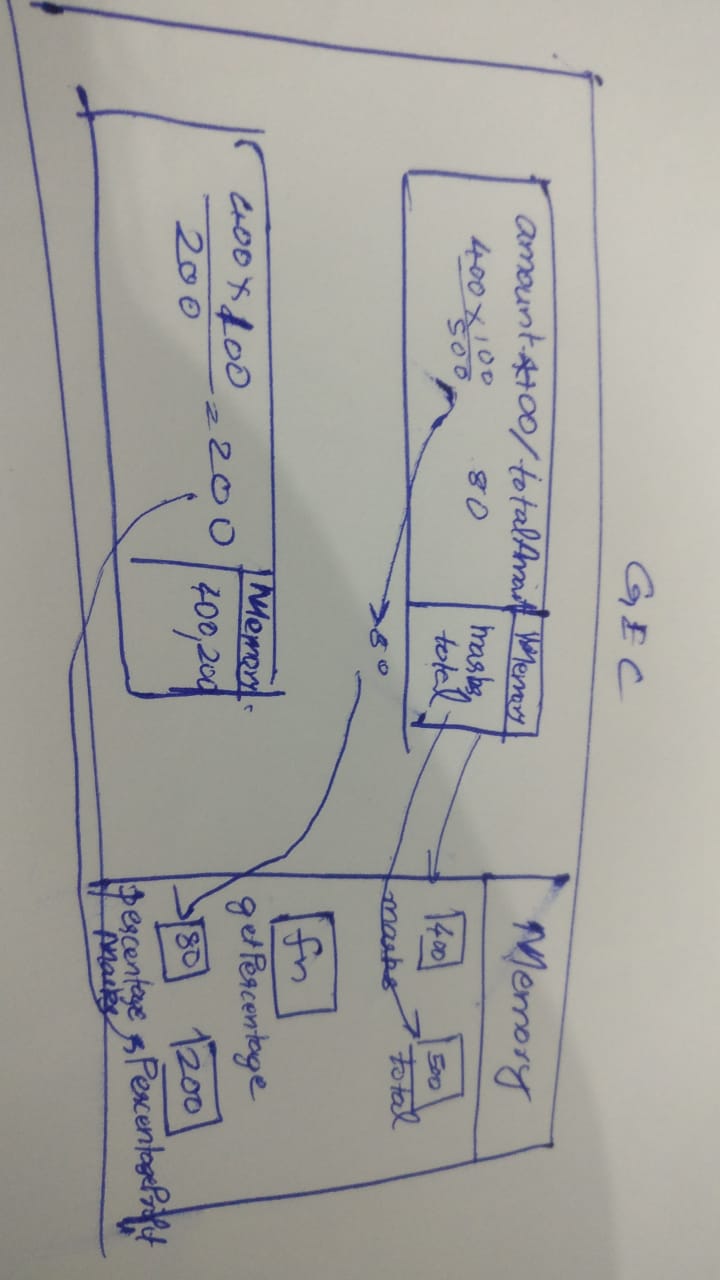 GEC
amount*100/totalAmount
400 x 100
500
80
Memory
marks
total
80
400 x 100
200
= 200
Memory
400, 200
Memory
400
500
marks
total
fn
getPercentage
80
200
percentage Marks
PercentageProfit